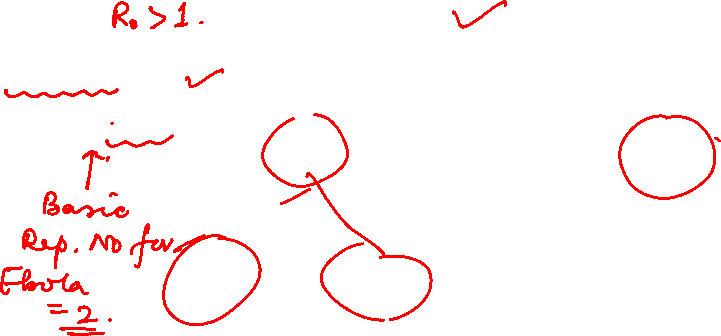 R₀ > 1.
Basic
Rep. No for
Ebola
= 2.